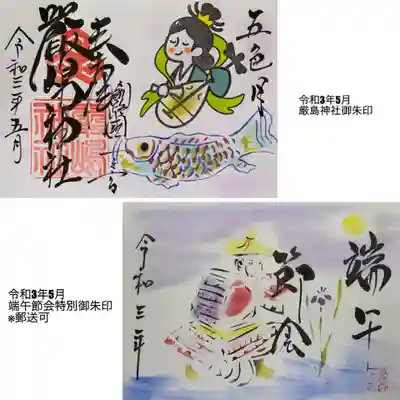 五色月
奉拝
嚴島神社
令和三年五月
令和3年5月
厳島神社御朱印
令和3年5月
端午節会特別御朱印
※郵送可
端午
節会
令和三年